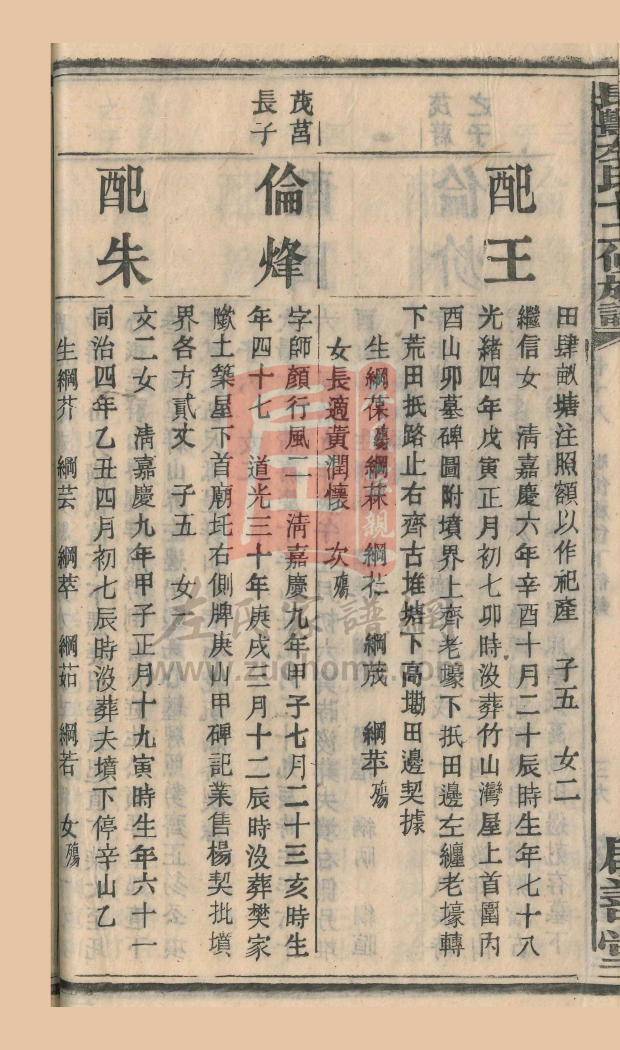 田肆畝塘注照額以作祀產 子五 女二
配王
繼信女 清嘉慶六年辛酉十月二十辰時生年七十八
光緒四年戊寅正月初七卯時沒葬竹山灣屋上首圍內
酉山卯墓碑圖附墳界上齊老壕下抵田邊左纏老壕轉
下荒田抵路止右齊古堆塘下高墈田邊契據
生綱葆 綱菻 綱芢 綱荿 綱苹殤
女長適黃潤懷 次殤
茂莒
長子
倫烽
字師顏行風二 清嘉慶九年甲子七月二十三亥時生
年四十七 道光三十年庚戌三月十二辰時沒葬樊家
隞土築屋下首廟圫右側牌庚山甲碑記業售楊契批墳
界各方貳丈 子五 女一
配朱
文二女 清嘉慶九年甲子正月十九寅時生年六十一
同治四年乙丑四月初七辰時沒葬夫墳下停辛山乙
生綱芥 綱芸 綱萃 綱茹 綱若 女殤
左氏家譜網
www.zuonome.com